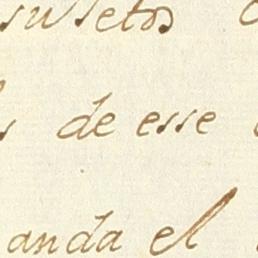 susetos
de esse
anda el